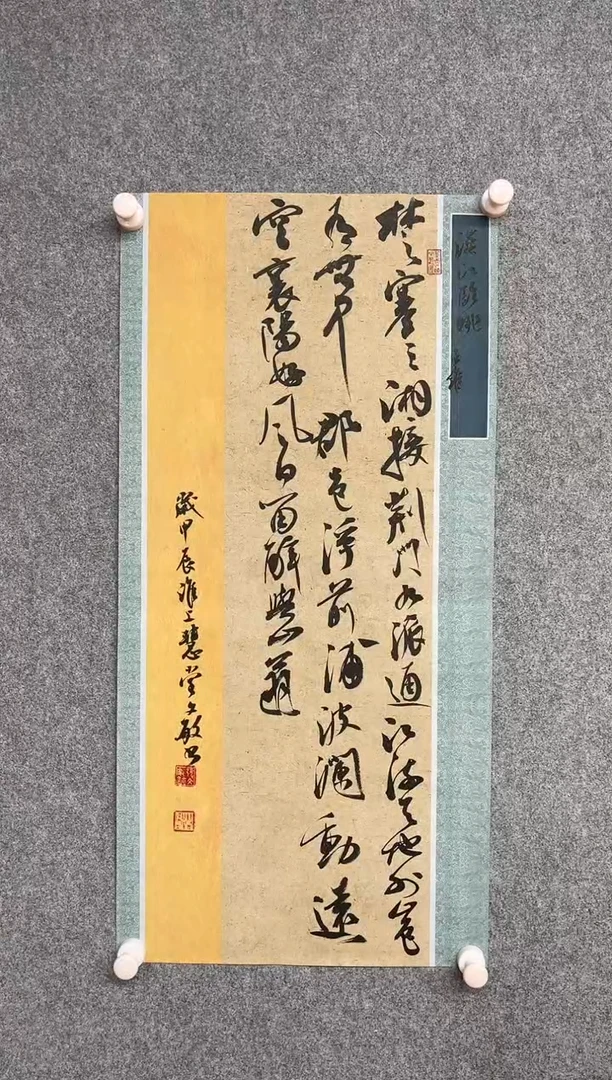 漢江臨眺
王維
楚塞三湘接荆門九派通江流天地外山色
有無中郡邑浮前浦波瀾動遠
空襄陽好風日留醉與山翁
歲甲辰淮上慧堂文啟書